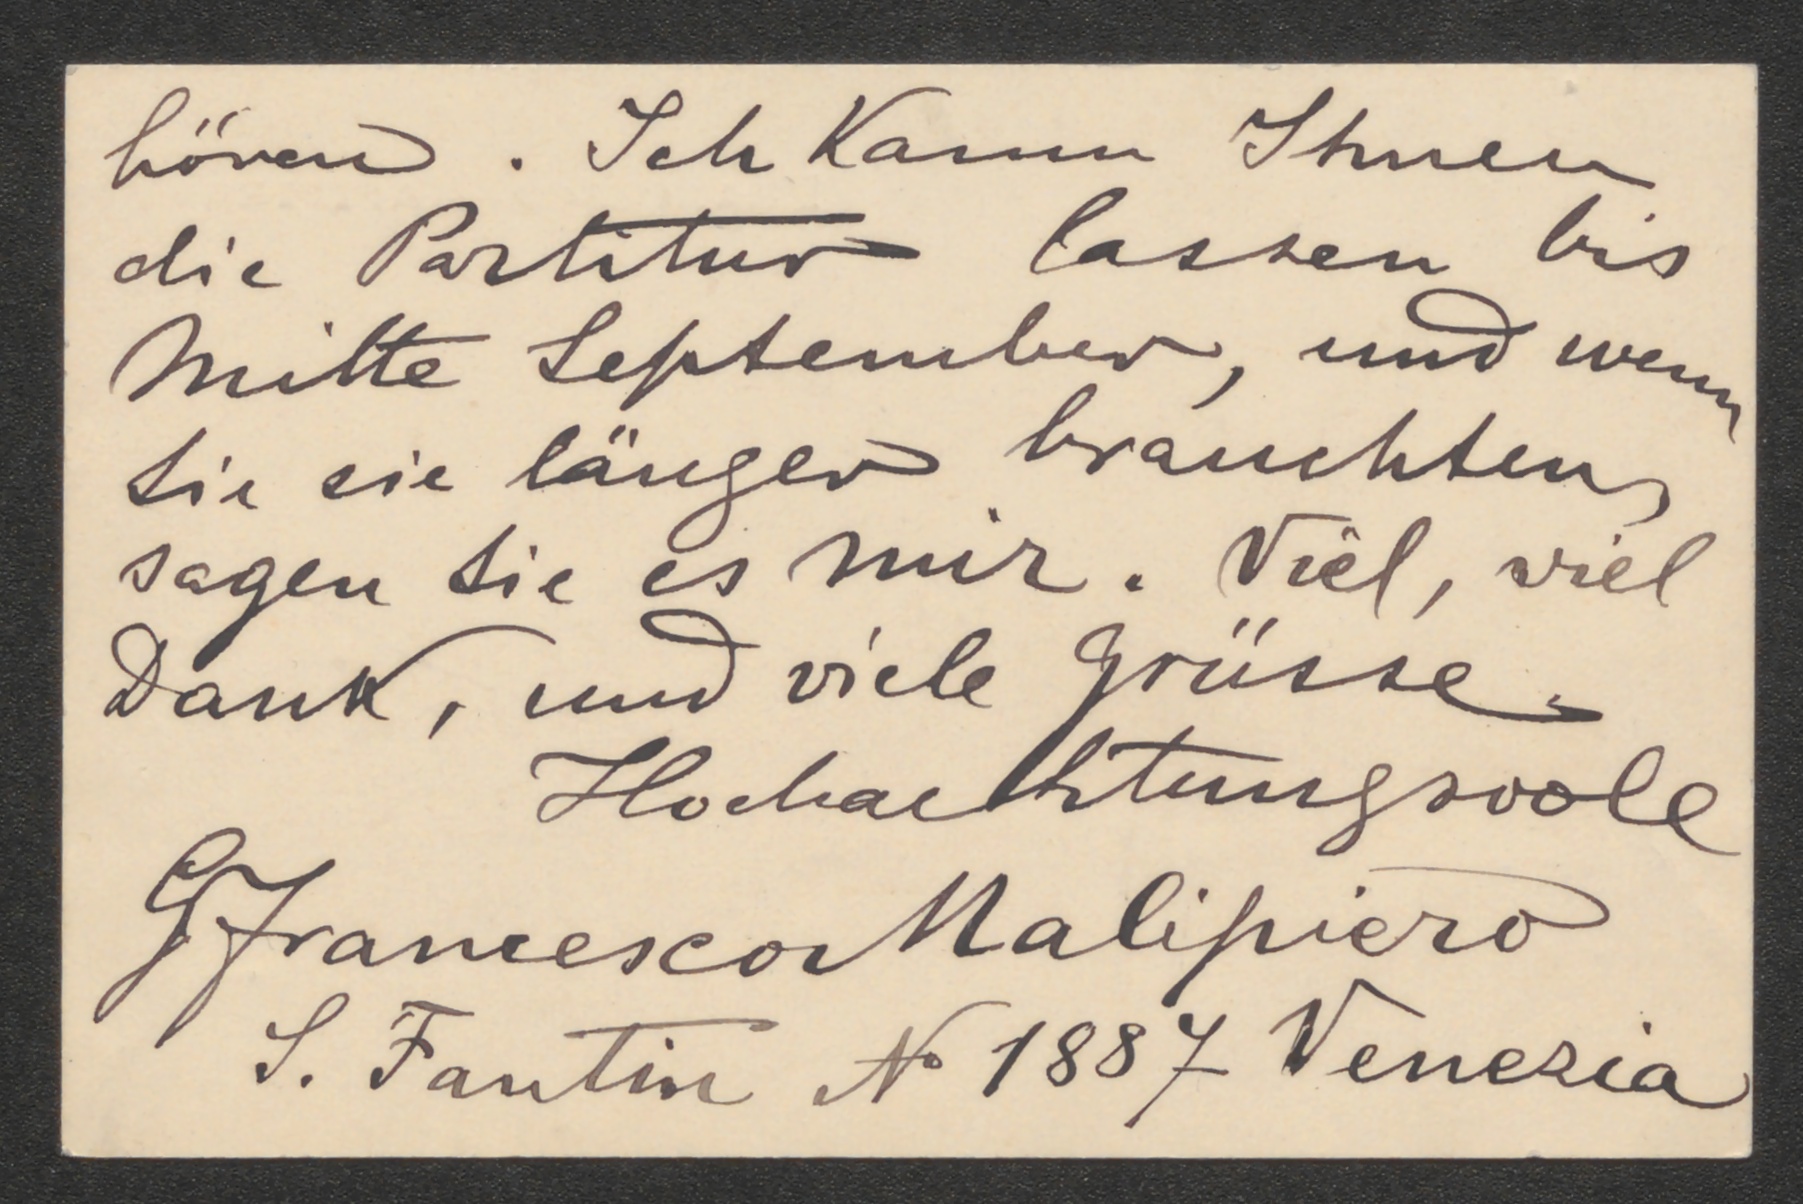 hören. Ich Kann Ihnen
die Partitur lassen bis
Mitte September, und wenn
Sie sie länger brauchten,
sagen Sie es mir. Viel, viel
Dank, und viele Grüsse.
Hochachtungsvoll
GFrancesco Malipiero
S. Fantin No 1887 Venezia